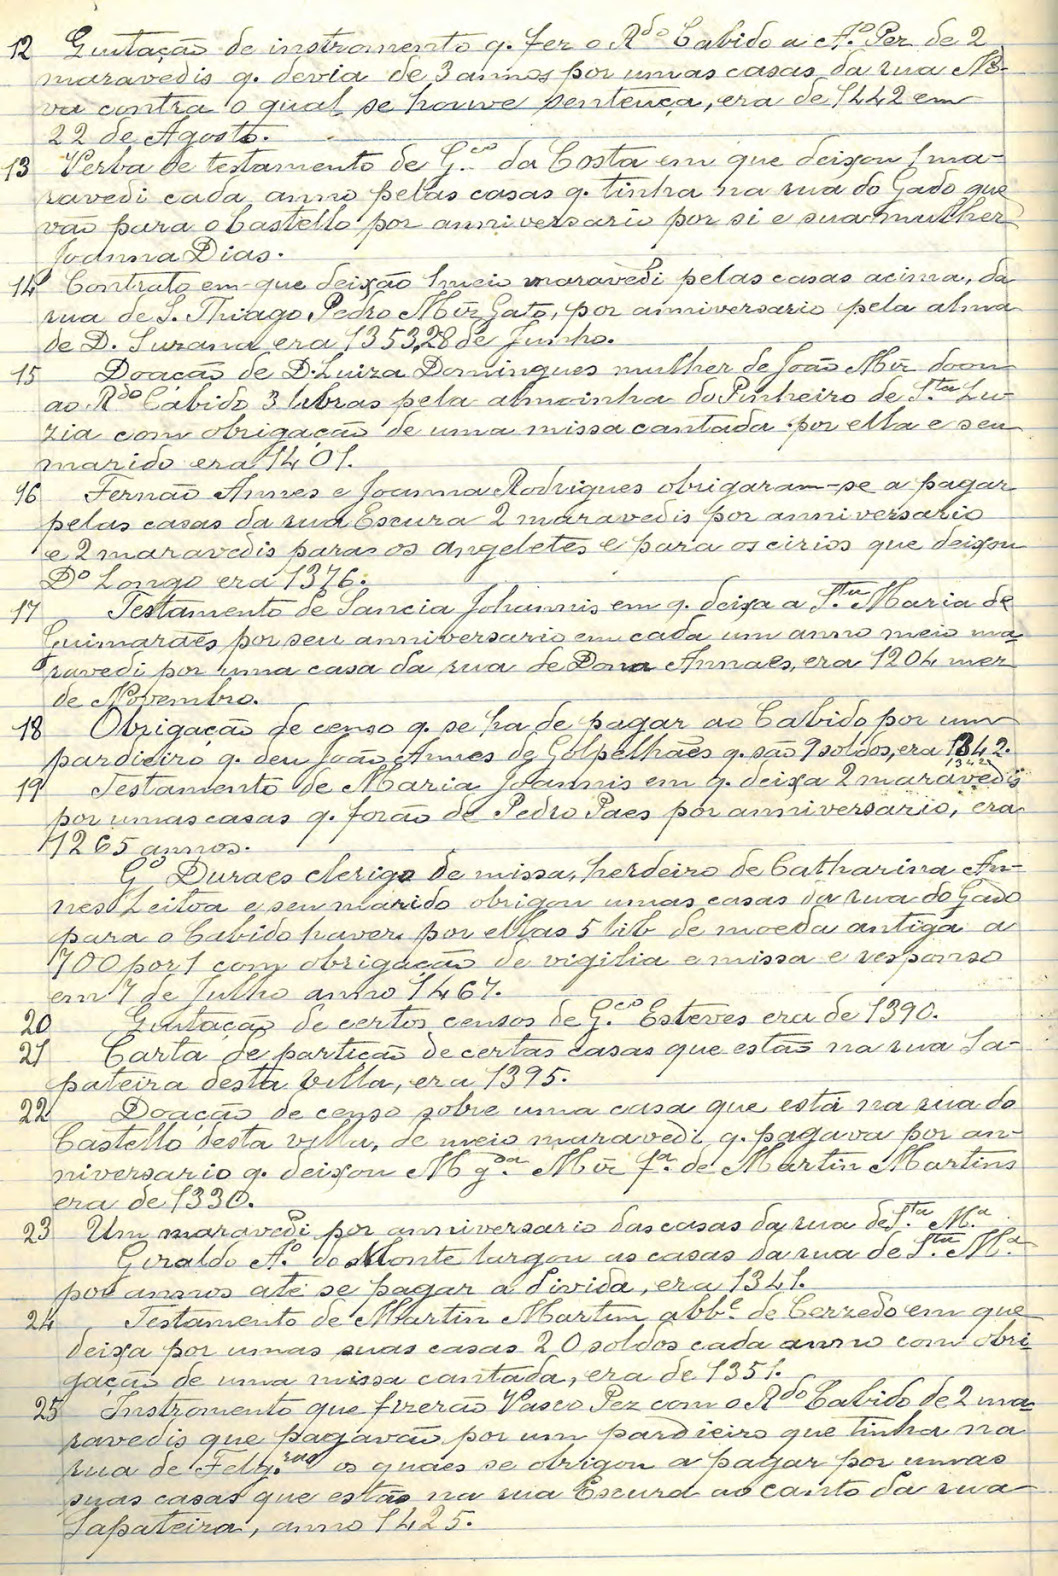 12 Quitação de instromento q. fez o R.do Cabido a A.o Pez de 2
maravedis q. devia de 3 annos por umas casas da rua No-
va contra o qual se houve sentença, era de 1442 em
22 de Agosto.
13 Verba de testamento de G.co da Costa em que deixou 1 ma-
ravedi cada anno pelas casas q. tinha na rua do Gado que
vão para o Castello por anniversario por si e sua mulher
Joanna Dias.
14 Contrato em que deixão 1 meio maravedi pelas casas acima, da
rua de S. Thiago, Pedro Miz Gato, por anniversario pela alma
de D. Suzana era 1353, 28 de Junho.
15 Doação de D. Luiza Domingues mulher de João Miz doou
ao R.do Cabido 3 libras pela almoinha do Pinheiro de S.ta Lu-
zia com obrigação de uma missa cantada por ella e seu
marido era 1401.
16 Fernão Annes e Joanna Rodrigues obrigaram-se a pagar
pelas casas da rua Escura 2 maravedis por anniversario
e 2 maravedis para os angeletes e para os cirios que deixou
D.o Longo era 1376.
17 Testamento de Sancia Johannis em q. deixa a S.ta Maria de
Guimarães por seu anniversario em cada um anno meio ma-
ravedi por uma casa da rua de Dona Annaes, era 1204 mez
de Novembro.
18 Obrigação de censo q. se ha de pagar ao Cabido por um
pardieiro q. deu João Annes de Golpelhães q. são 9 soldos, era 1342.
1342
19 Testamento de Maria Joannis em q. deixa 2 maravedis
por umas casas q. forão de Pedro Paes por anniversario, era
1265 annos.
G.o Duraes clerigo de missa, herdeiro de Catharina An-
nes Leitoa e seu marido obrigou umas casas da rua do Gado
para o Cabido haver por ellas 5 lib de moeda antiga a
700 por 1 com obrigação de vigilia e missa e responso
em 7 de Julho anno 1467.
20 Quitação de certos censos de G.co Esteves era de 1390.
21 Carta de partição de certas casas que estão na rua Sa-
pateira desta villa, era 1395.
22 Doação de censo sobre uma casa que está na rua do
Castello desta villa, de meio maravedi q. pagava por an-
niversario q. deixou M g.da Miz f.a de Martin Martins
era de 1330.
23 Um maravedi por anniversario das casas da rua de S.ta M.a
Giraldo A.o do Monte largou as casas da rua de S.ta M.a
por annos até se pagar a divida, era 1341.
24 Testamento de Martin Martim abb.e de Cerzedo em que
deixa por umas suas casas 20 soldos cada anno com obri-
gação de uma missa cantada, era de 1351.
25 Instromento que fizerão Vasco Pez com o R.do Cabido de 2 ma-
ravedis que pagavão por um pardieiro que tinha na
rua de Felg.ras os quaes se obrigou a pagar por umas
suas casas que estão na rua Escura ao canto da rua
Sapateira, anno 1425.